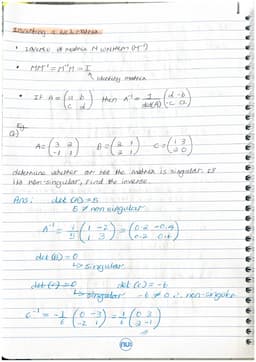 Inverting a 2x2 matrix
• inverse of matrix M written (M⁻¹)
• MM⁻¹ = M⁻¹M = I
identity matrix
• If A = (a b / c d) then A⁻¹ = 1/det(A) (d -b / -c a)
Eg.
Q)
A = (3 2 / -1 1) B = (2 1 / 2 1) C = (1 3 / 2 0)
determine whether or not the matrix is singular. If
its non-singular, find the inverse.
Ans: det (A) = 5
5 ≠ non singular
A⁻¹ = 1/5 (1 -2 / 1 3) = (0.2 -0.4 / 0.2 0.6)
det (B) = 0
↳ singular
det (C) = 0 det (C) = -6
↳ singular -6 ≠ 0 ∴ non-singular
C⁻¹ = -1/6 (0 -3 / -2 1) = 1/6 (0 3 / 2 -1)